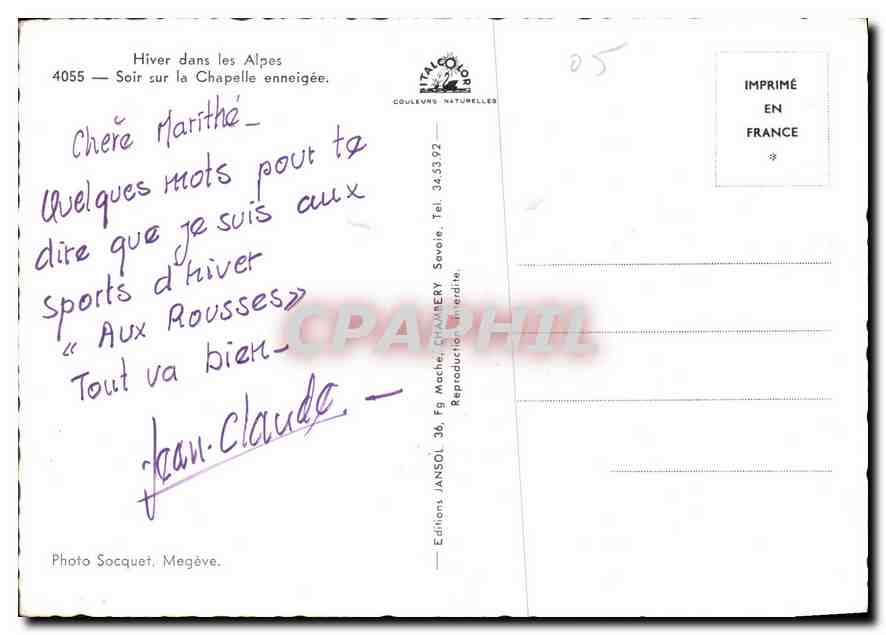 Hiver dans les Alpes
4055 — Soir sur la Chapelle enneigée.
Cherĕ Marithé -
Quelques mots pour te
dire que je suis aux
sports d'hiver
« Aux Rousses »
Tout va bien -
Jean-Claude. -
Photo Socquet, Megève.
ITALCOLOR
COULEURS NATURELLES
— Editions JANSOL 36, Fg Mache, CHAMBERY Savoie, Tel. 34.53.92 —
Reproduction interdite.
05
IMPRIMÉ
EN
FRANCE
*
CPAPHIL